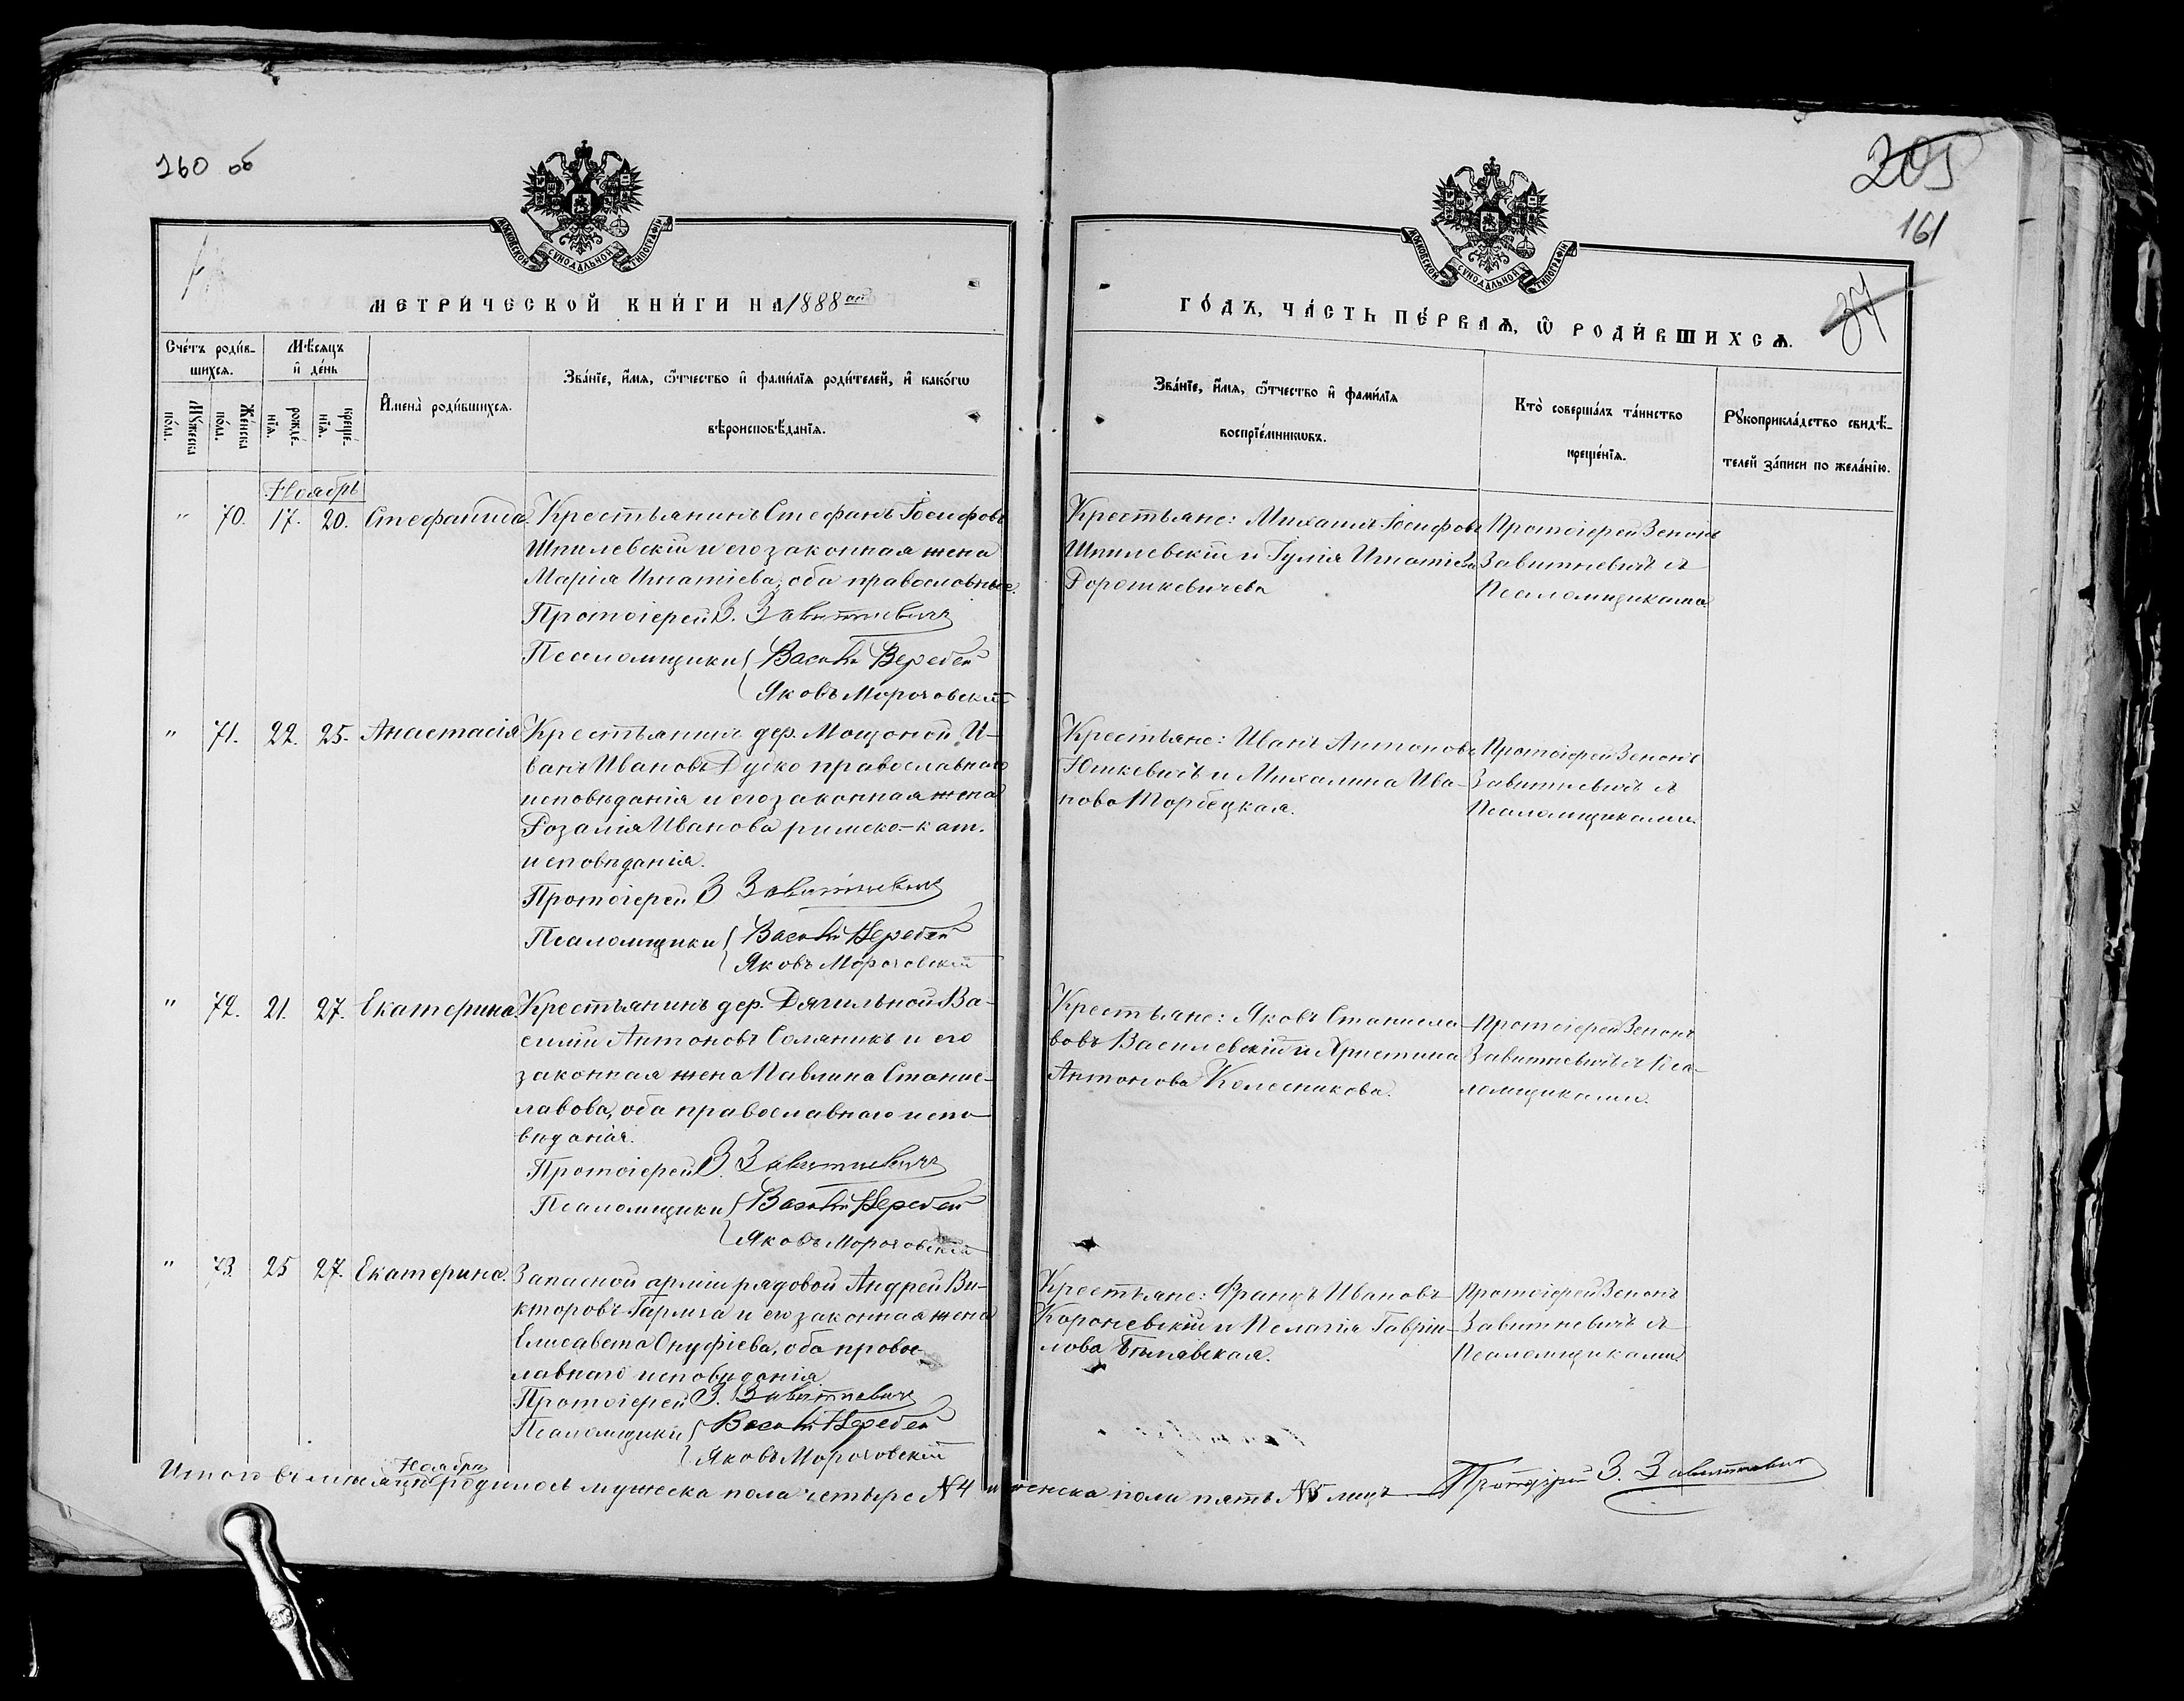 160 об
205
161
34
МОСКОВСКОЙ СѴНОДАЛЬНОЙ ТИПОГРАФІИ
МЕТРИ́ЧЕСКОЙ КНИ́ГИ НА 1888 ый
МОСКОВСКОЙ СѴНОДАЛЬНОЙ ТИПОГРАФІИ
ГО́ДЪ, ЧА́СТЬ ПЕ́РВАѦ, Ѡ҆ РОДИ́ВШИХСѦ.
Сче́тъ роди́в-
шихсѧ.
Мꙋ́жеска по́ла.
Же́нска по́ла.
Мѣ́сѧцъ
и҆ де́нь
рожде́-
нїѧ.
креще́-
нїѧ.
И҆мена̀ роди́вшихсѧ.
Зва́нїе, и҆́мѧ, ѻ҆́тчество и҆ фами́лїѧ роди́телей, и҆ како́гѡ
вѣроисповѣ́данїѧ.
Зва́нїе, и҆́мѧ, ѻ҆́тчество и҆ фами́лїѧ
воспрїе́мникѡвъ.
Кто̀ соверша́лъ та́инство
креще́нїѧ.
Рꙋкоприкла́дство свидѣ́-
телей за́писи по жела́нїю.
Ноябрь
" 70. 17. 20. Стефанида. Крестьянинъ Стефанъ Іосифовъ
Шпилевскій и его законная жена
Марія Игнатіева, оба православные.
Протоіерей З. Завитневичъ
Псаломщики { Василій Веребей
Яковъ Морочовскій
Крестьяне: Михаилъ Іосифовъ
Шпилевскій и Іулія Игнатіева
Дорошкевичева
Протоіерей Зенонъ
Завитневичъ съ
Псаломщиками
" 71. 22. 25. Анастасія Крестьянинъ дер. Мощоной И-
ванъ Ивановъ Дуско православнаго
исповѣданія и его законная жена
Розалія Иванова римско-кат.
исповѣданія.
Протоіерей З Завитневичъ
Псаломщики { Василій Веребей
Яковъ Морочовскій
Крестьяне: Иванъ Антоновъ
Юшкевичъ и Михалина Ива-
нова Торбецкая.
Протоіерей Зенонъ
Завитневичъ съ
Псаломщиками.
" 72. 21. 27. Екатерина. Крестьянинъ дер. Дягильной Ва-
силій Антоновъ Соляникъ и его
законная жена Павлина Станис-
лавова, оба православнаго испо-
вѣданія.
Протоіерей З. Завитневичъ
Псаломщики { Василій Веребей
Яковъ Морочовскій
Крестьяне: Яковъ Станисла-
вовъ Василевскій и Христина
Антонова Колесникова.
Протоіерей Зенонъ
Завитневичъ съ Пса-
ломщиками.
" 73. 25 27. Екатерина. Запасной арміи рядовой Андрей Ви-
кторовъ Гармоза и его законная жена
Елисавета Онуфріева, оба правос-
лавнаго исповѣданія
Протоіерей З. Завитневичъ
Псаломщики { Василій Веребей
Яковъ Морочовскій
Крестьяне: Францъ Ивановъ
Короневскій и Пелагія Гавріи-
лова Бѣлявская.
Протоіерей Зенонъ
Завитневичъ съ
Псаломщиками.
Ноябрѣ
Итого въ мѣсяцѣ родилось мужеска пола четыре № 4 и женска пола пять № 5 лицъ Протоіерей З. Завитневичъ